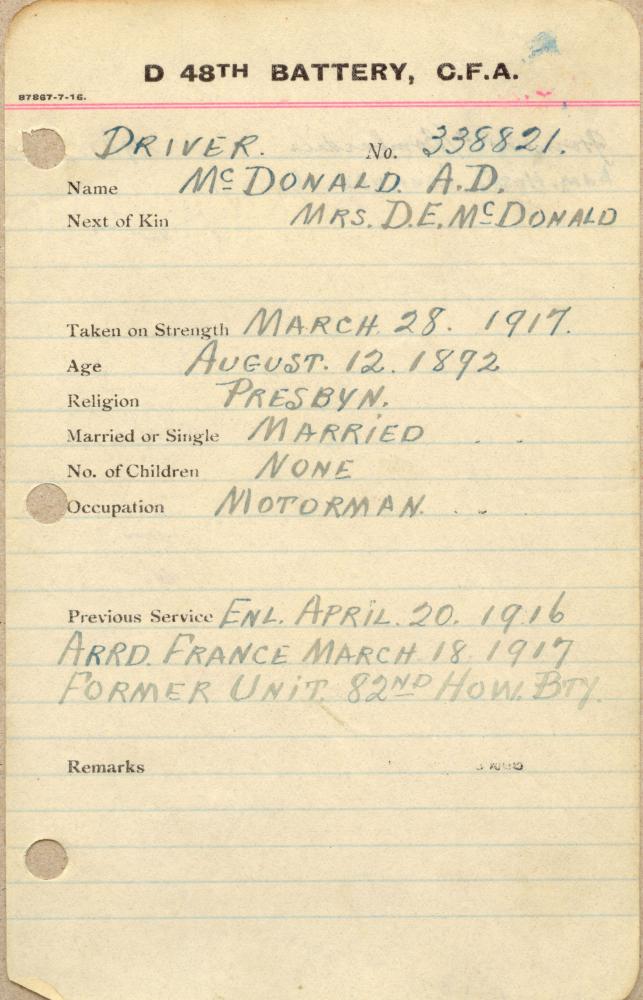 D 48TH BATTERY, C.F.A.
87867-7-16.
DRIVER. No. 338821.
Name McDONALD. A.D.
Next of Kin MRS. D.E. McDONALD
Taken on Strength MARCH. 28. 1917.
Age AUGUST. 12. 1892
Religion PRESBYN.
Married or Single MARRIED
No. of Children NONE
Occupation MOTORMAN.
Previous Service ENL. APRIL. 20. 1916
ARRD. FRANCE MARCH 18. 1917
FORMER UNIT. 82ND HOW. BTY.
Remarks